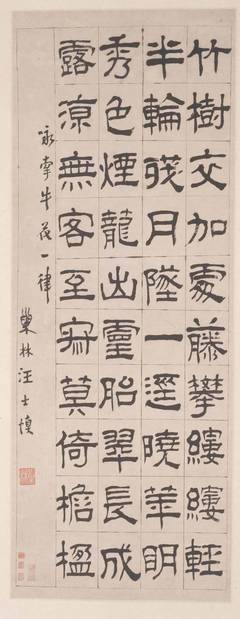 竹樹交加處藤攀縷縷輕
半輪殘月墜一逕曉華明
秀色煙龍出靈胎翠長成
露涼無客至寂莫倚檐楹
咏牽牛花一律
巢林汪士慎